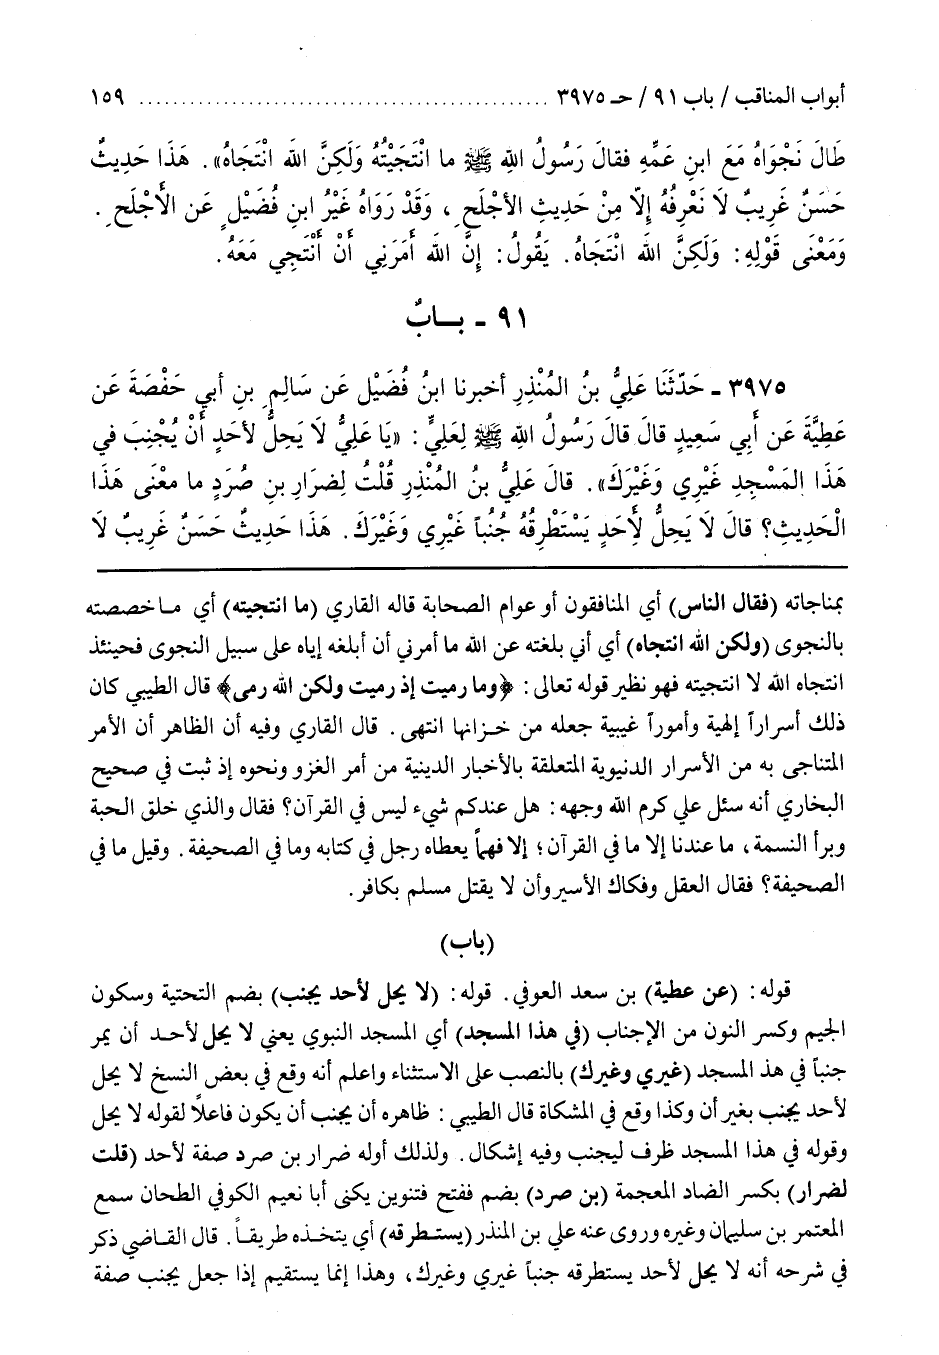 أبواب المناقب / باب ٩١ / حـ ٣٩٧٥ ................................................ ١٥٩
طَالَ نَجْوَاهُ مَعَ ابنِ عَمِّهِ فقالَ رَسُولُ اللهِ ﷺ ما انْتَجَيْتُهُ وَلَكِنَّ اللهَ انْتَجَاهُ». هَذَا حَدِيثٌ
حَسَنٌ غَرِيبٌ لَا نَعْرِفُهُ إلّا مِنْ حَدِيثِ الأجْلَحِ، وَقَدْ رَوَاهُ غَيْرُ ابنِ فُضَيْلٍ عَنِ الأَجْلَحِ.
وَمَعْنَى قَوْلِهِ: وَلَكِنَّ اللهَ انْتَجَاهُ. يَقُولُ: إِنَّ اللهَ أَمَرَنِي أَنْ أَنْتَجِي مَعَهُ.
٩١ - بـــابٌ
٣٩٧٥ - حَدّثَنَا عَلِيُّ بنُ المُنْذِرِ أخبرنا ابنُ فُضَيْل عَن سَالِمِ بنِ أبي حَفْصَةَ عَن
عَطِيَّةَ عَن أَبِي سَعِيدٍ قالَ قالَ رَسُولُ اللهِ ﷺ لِعَلِيٍّ: «يَا عَلِيُّ لَا يَحِلُّ لأحَدٍ أَنْ يُجْنِبَ في
هَذَا المَسْجِدِ غَيْرِي وَغَيْرَكَ». قالَ عَلِيُّ بنُ المُنْذِرِ قُلْتُ لِضِرَارِ بنِ صُرَدٍ ما معْنَى هَذَا
الْحَدِيثِ؟ قالَ لَا يَحِلُّ لأَحَدٍ يَسْتَطْرِقُهُ جُنُباً غَيْرِي وَغَيْرَكَ. هَذَا حَدِيثٌ حَسَنٌ غَرِيبٌ لَا
بمناجاته (فقال الناس) أي المنافقون أو عوام الصحابة قاله القاري (ما انتجيته) أي مـا خصصته
بالنجوى (ولكن الله انتجاه) أي أني بلغته عن الله ما أمرني أن أبلغه إياه على سبيل النجوى فحينئذ
انتجاه الله لا انتجيته فهو نظير قوله تعالى: ﴿وما رميت إذ رميت ولكن الله رمى﴾ قال الطيبي كان
ذلك أسراراً إلهية وأموراً غيبية جعله من خـزانها انتهى. قال القاري وفيه أن الظاهر أن الأمر
المتناجى به من الأسرار الدنيوية المتعلقة بالأخبار الدينية من أمر الغزو ونحوه إذ ثبت في صحيح
البخاري أنه سئل علي كرم الله وجهه: هل عندكم شيء ليس في القرآن؟ فقال والذي خلق الحبة
وبرأ النسمة، ما عندنا إلا ما في القرآن؛ إلا فهماً يعطاه رجل في كتابه وما في الصحيفة. وقيل ما في
الصحيفة؟ فقال العقل وفكاك الأسير وأن لا يقتل مسلم بكافر.
(باب)
قوله: (عن عطية) بن سعد العوفي. قوله: (لا يحل لأحد يجنب) بضم التحتية وسكون
الجيم وكسر النون من الإجناب (في هذا المسجد) أي المسجد النبوي يعني لا يحل لأحـد أن يمر
جنباً في هذ المسجد (غيري وغيرك) بالنصب على الاستثناء واعلم أنه وقع في بعض النسخ لا يحل
لأحد يجنب بغير أن وكذا وقع في المشكاة قال الطيبي: ظاهره أن يجنب أن يكون فاعلاً لقوله لا يحل
وقوله في هذا المسجد ظرف ليجنب وفيه إشكال. ولذلك أوله ضرار بن صرد صفة لأحد (قلت
لضرار) بكسر الضاد المعجمة (بن صرد) بضم ففتح فتنوين يكنى أبا نعيم الكوفي الطحان سمع
المعتمر بن سليمان وغيره وروى عنه علي بن المنذر (يستـطرقه) أي يتخـذه طريقـاً. قال القـاضي ذكر
في شرحه أنه لا يحل لأحد يستطرقه جنباً غيري وغيرك، وهذا إنما يستقيم إذا جعل يجنب صفة